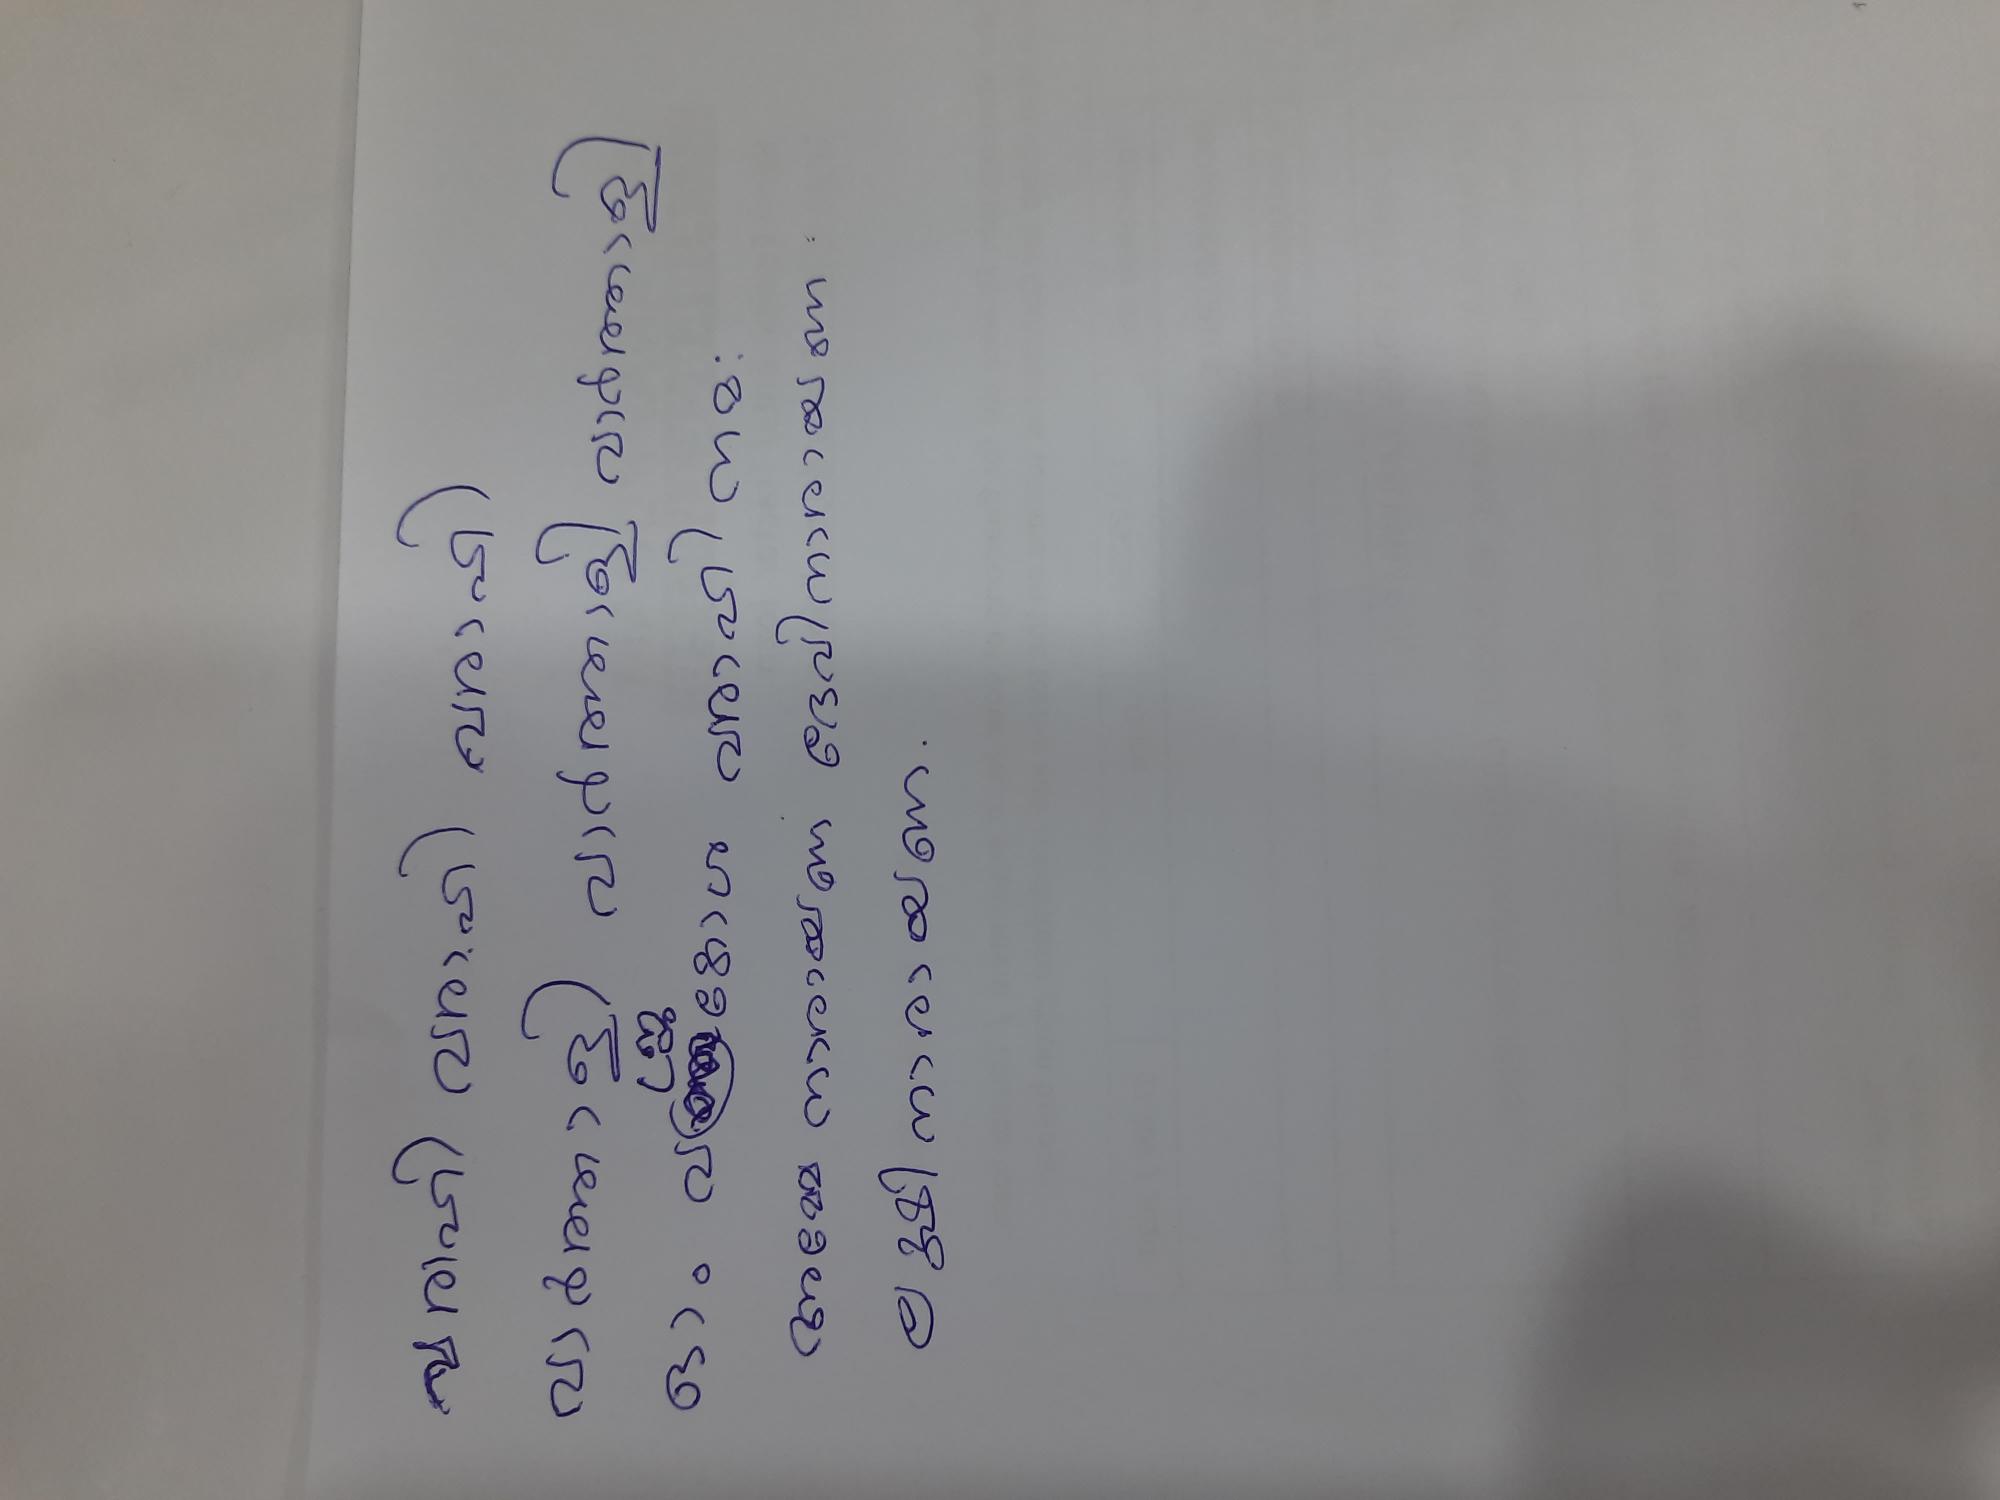 വരാഹി വരാഹി വരാഹി
വാർത്താളി വാർത്താളി വാർത്താളി
ഓം വജ്രകോശ വരാഹി നമ:
അമ്മേ നാരായണ ദേവിനാരായണ
ലക്ഷ്മി നാരായണ.